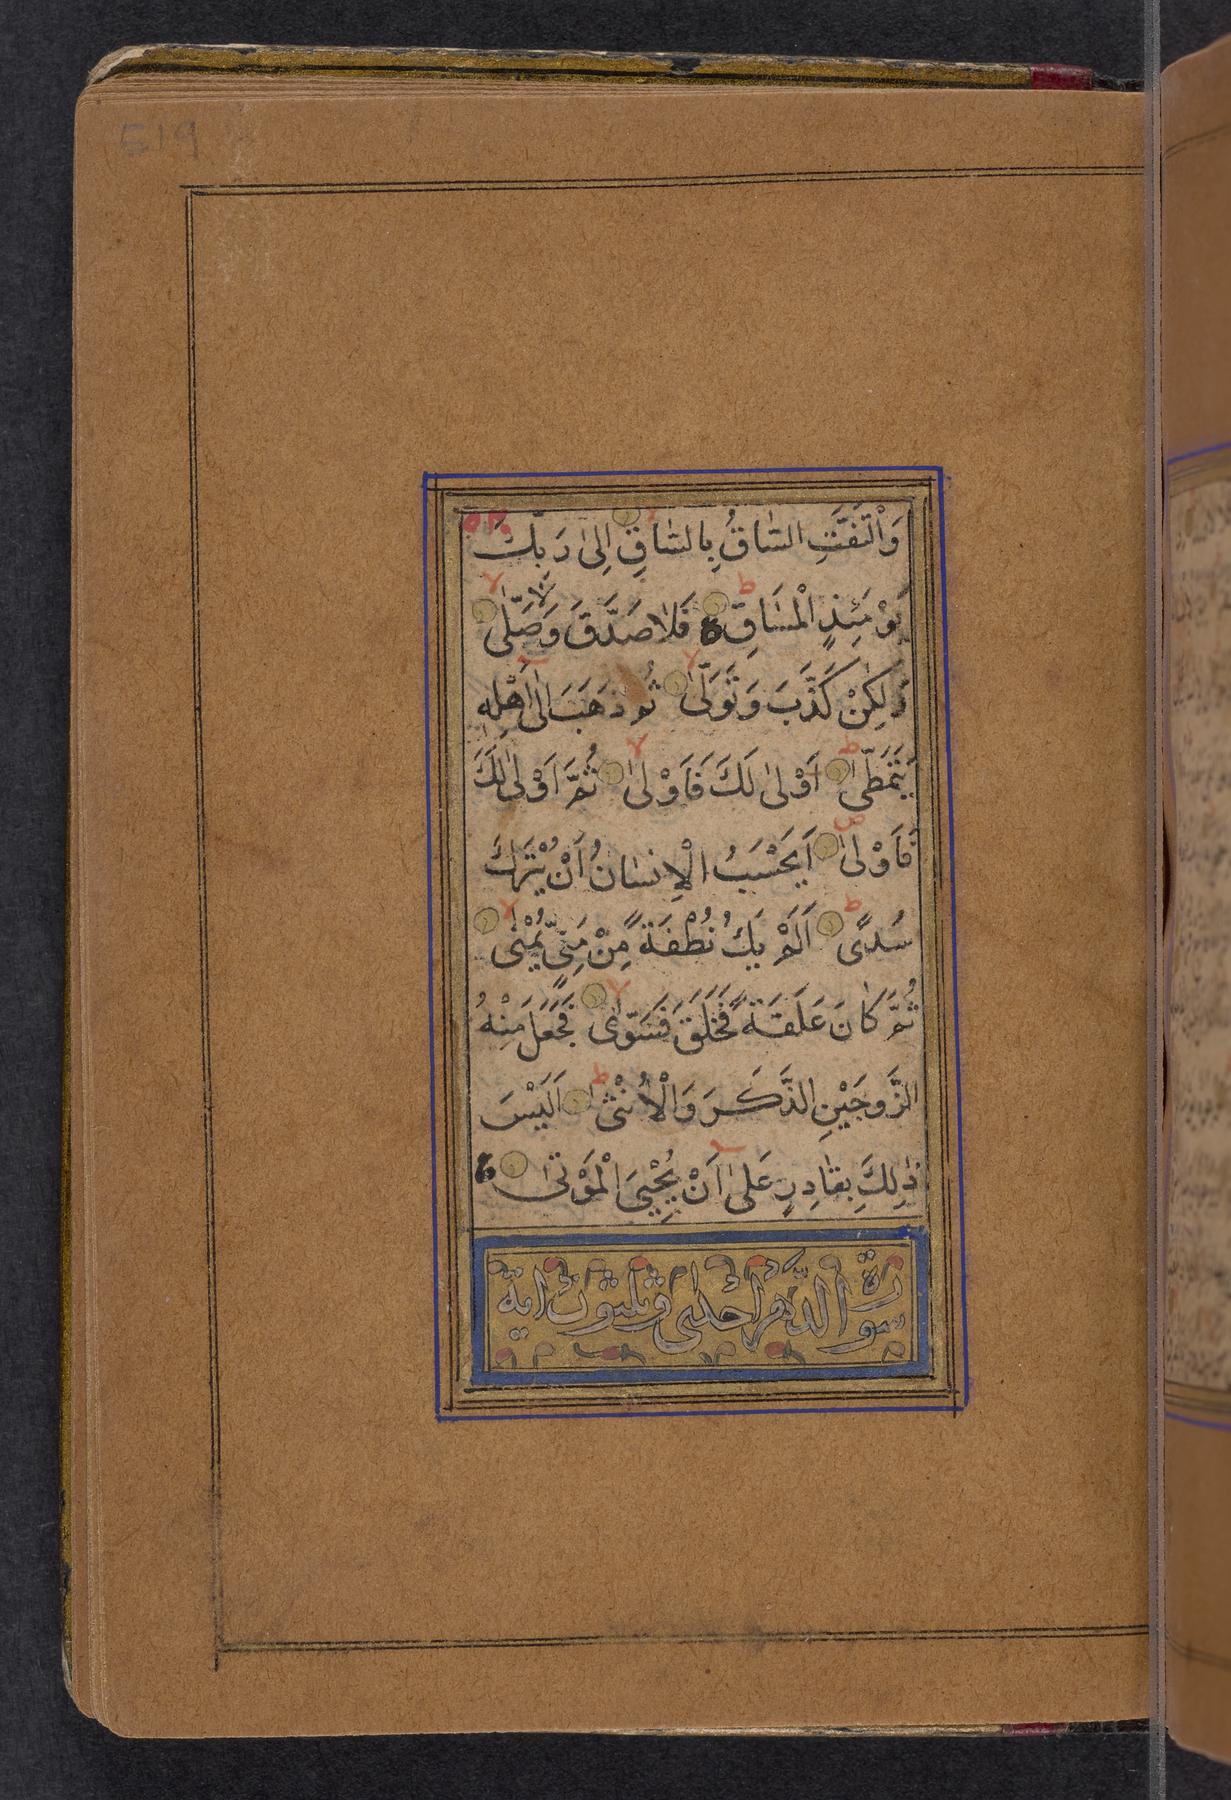 519
وَالْتَفَّتِ السَّاقُ بِالسَّاقِ اِلىٰ رَبِّكَ
يَوْمَئِذٍ الْمَسَاقِ فَلَا صَدَّقَ وَلَا صَلّٰى
وَلٰكِنْ كَذَّبَ وَتَوَلّٰى ثُمَّ ذَهَبَ اِلىٰ اَهْلِهٖ
يَتَمَطّٰى اَوْلىٰ لَكَ فَاَوْلىٰ ثُمَّ اَوْلىٰ لَكَ
فَاَوْلىٰ اَيَحْسَبُ الْاِنسَانُ اَنْ يُتْرَكَ
سُدًى اَلَمْ يَكُ نُطْفَةً مِنْ مَنِىٍّ يُمْنٰى
ثُمَّ كَانَ عَلَقَةً فَخَلَقَ فَسَوّٰى فَجَعَلَ مِنْهُ
الزَّوجَيْنِ الذَّكَرَ وَالْاُنْثٰى اَلَيْسَ
ذٰلِكَ بِقَادِرٍ عَلىٰ اَنْ يُحْيِىَ الْمَوْتٰى
سورة الدَّهر احدى وثلثون اية